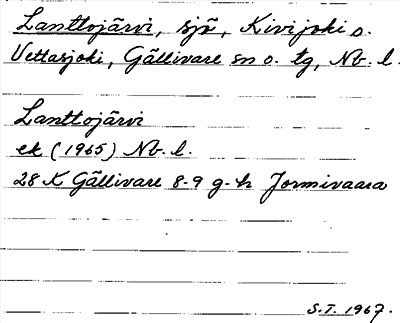 Lanttojärvi, sjö, Kivijoki o.
Vettasjoki, Gällivare sn o. tg, Nb. l.
Lanttojärvi
ek (1965) Nb. l.
28 K Gällivare 8-9 g-h Jormivaara
S.T. 1967.